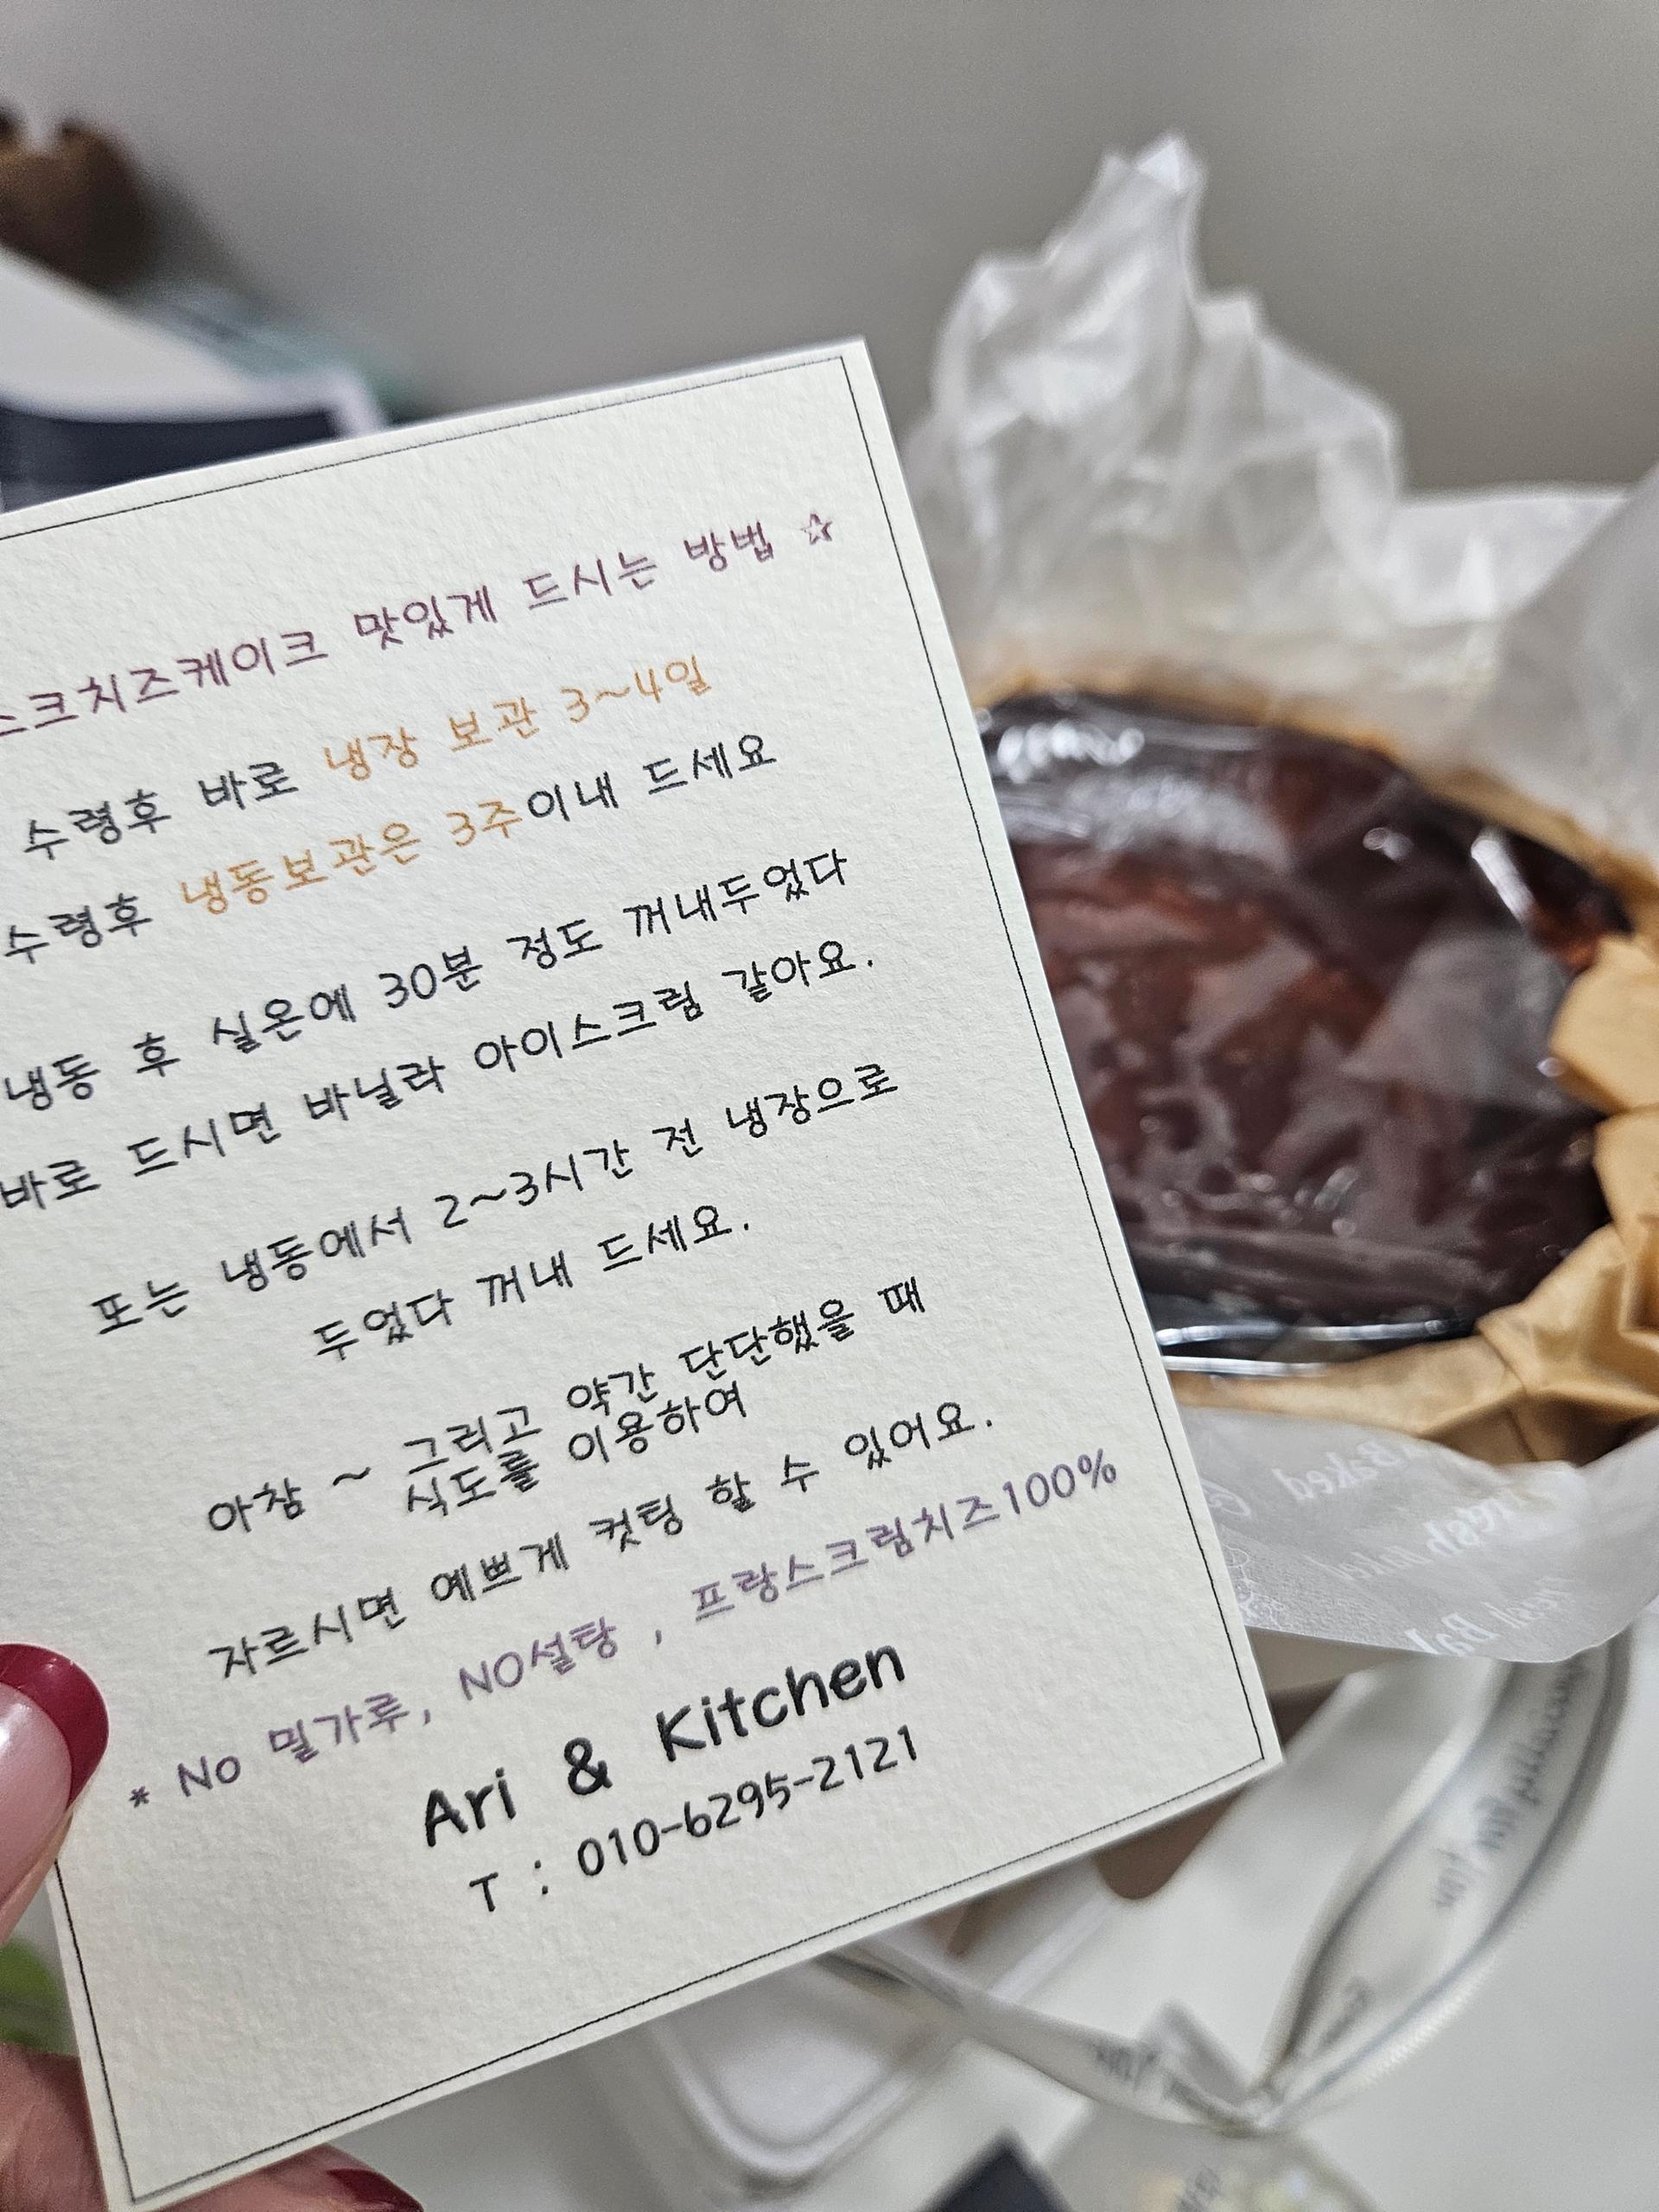 스크치즈케이크 맛있게 드시는 방법 ☆
수령후 바로 냉장 보관 3~4일
수령후 냉동보관은 3주이내 드세요
냉동 후 실온에 30분 정도 꺼내두었다
바로 드시면 바닐라 아이스크림 같아요.
또는 냉동에서 2~3시간 전 냉장으로
두었다 꺼내 드세요.
아참 ~ 그리고 약간 단단했을 때
식도를 이용하여
자르시면 예쁘게 컷팅 할 수 있어요.
* No 밀가루, NO설탕 , 프랑스크림치즈100%
Ari & Kitchen
T : 010-6295-2121